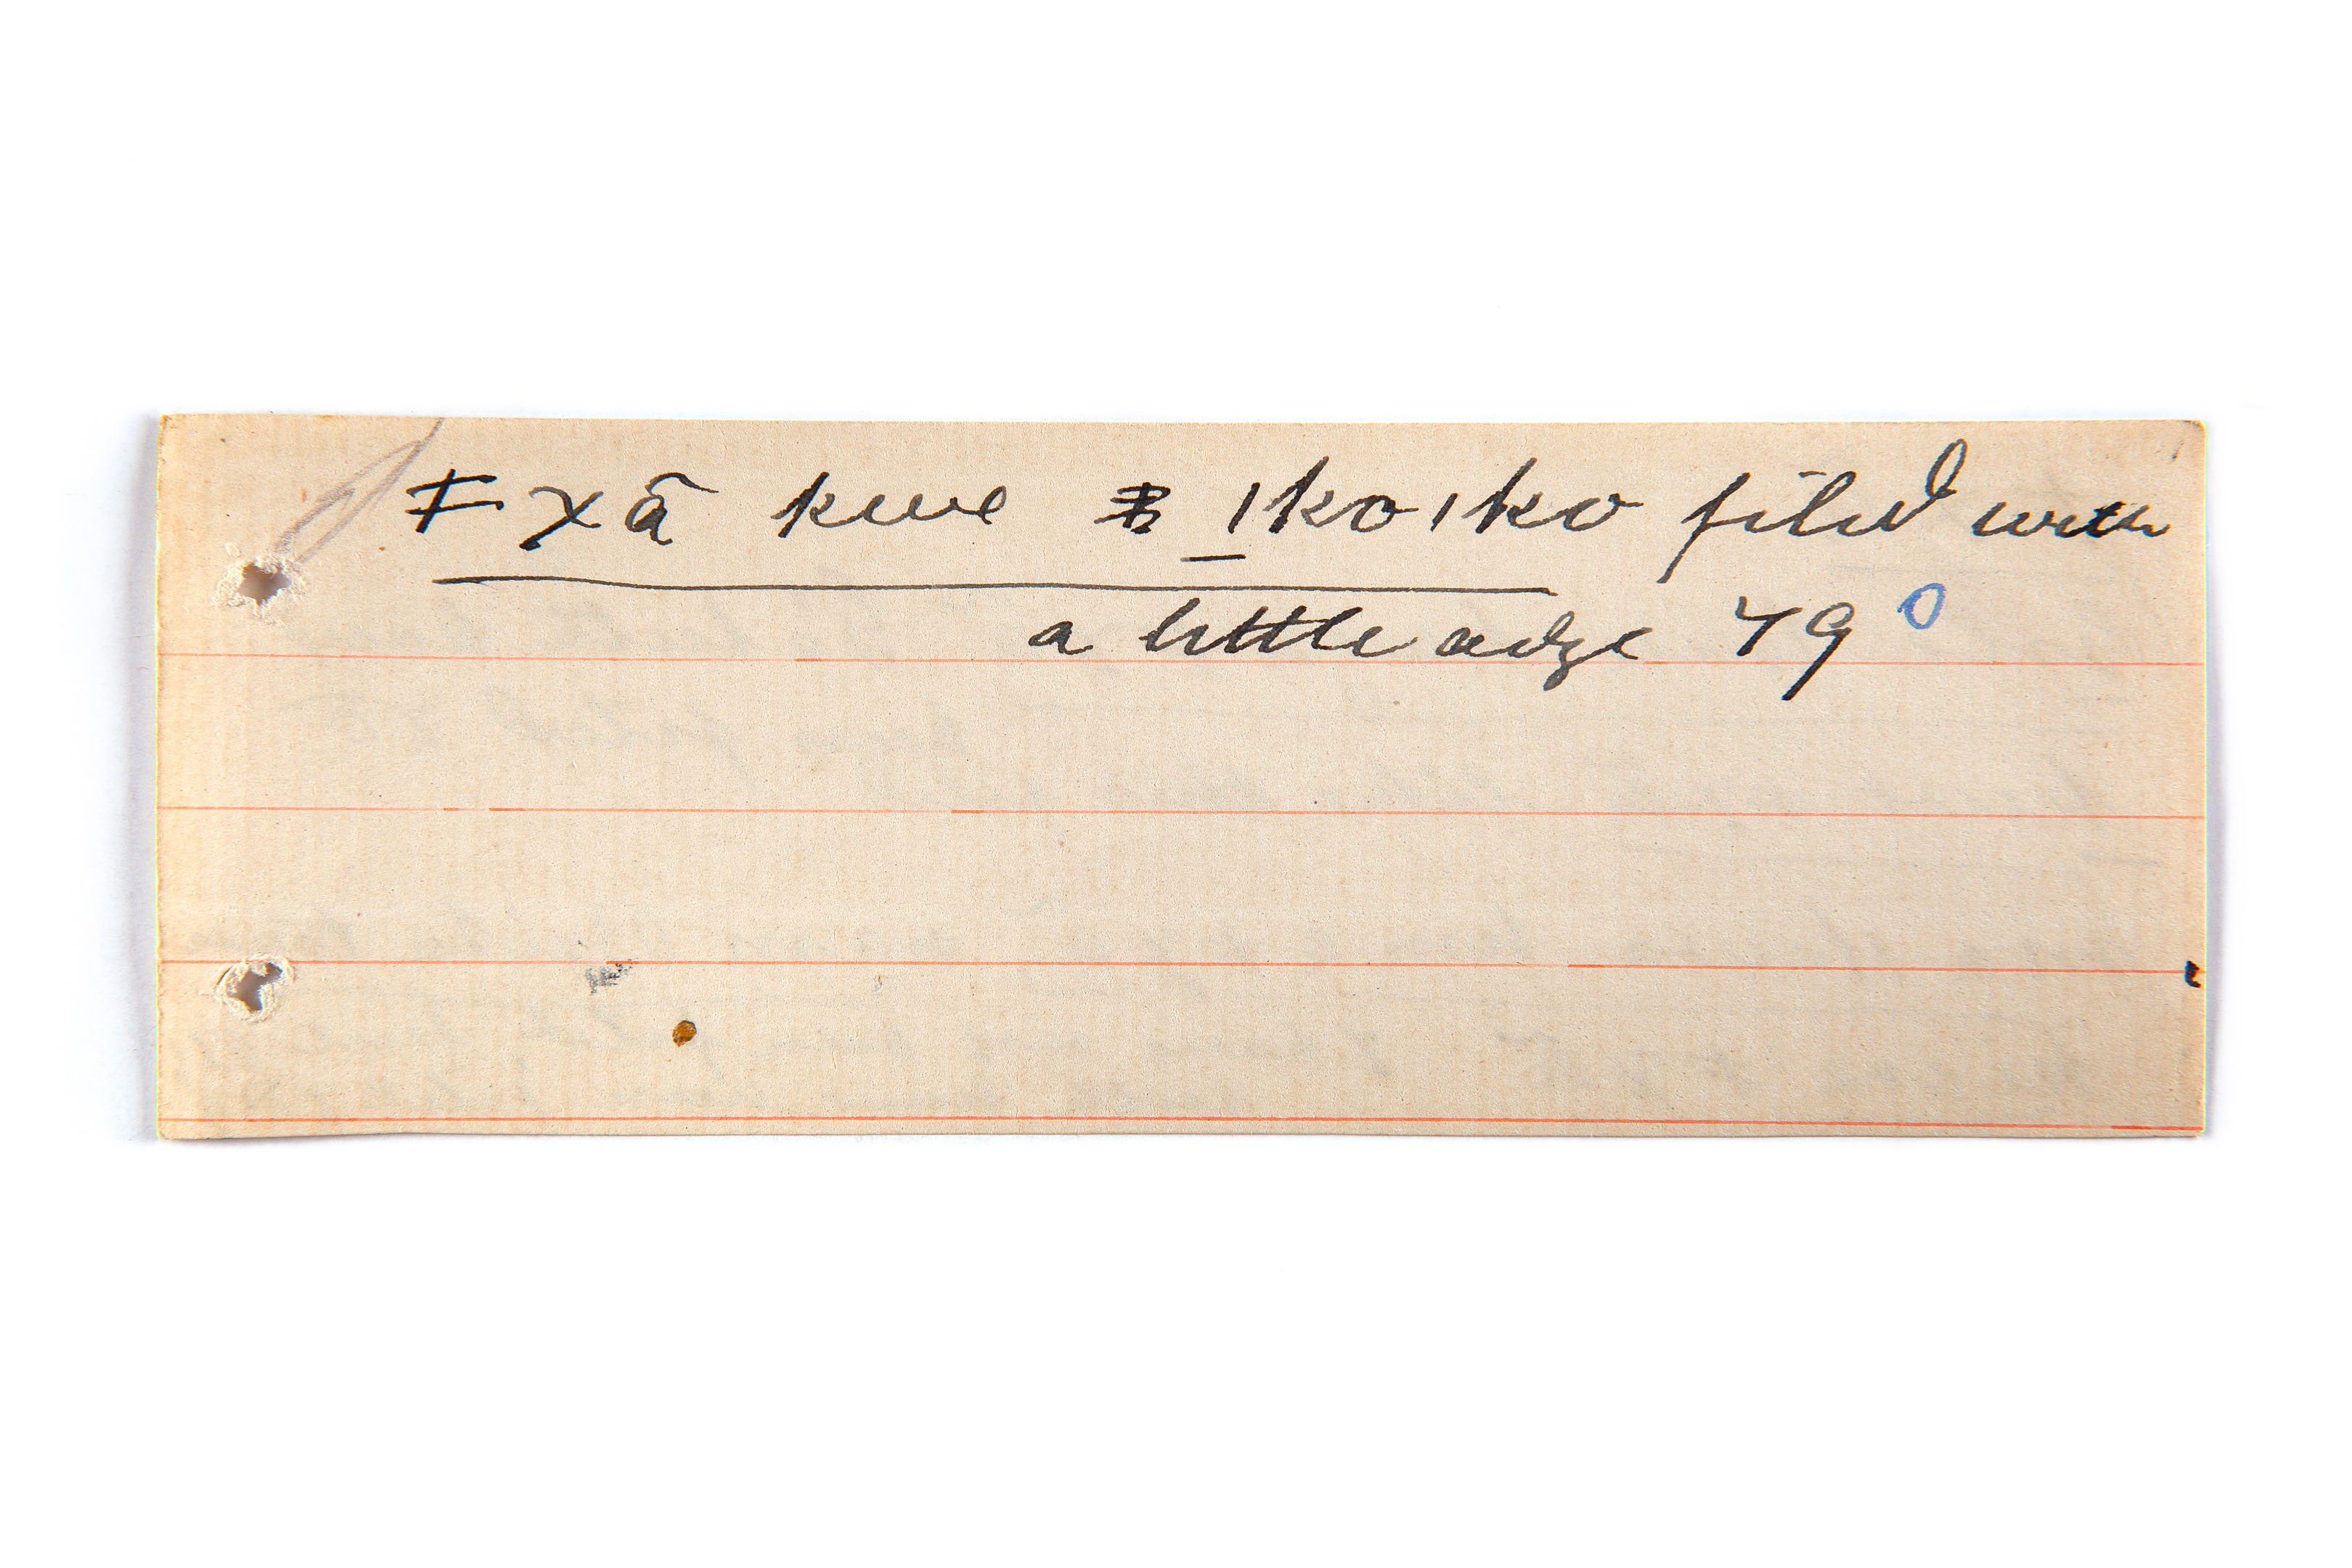 ǂ xā kwe |ko|ko filed with
a little adze 79⁰